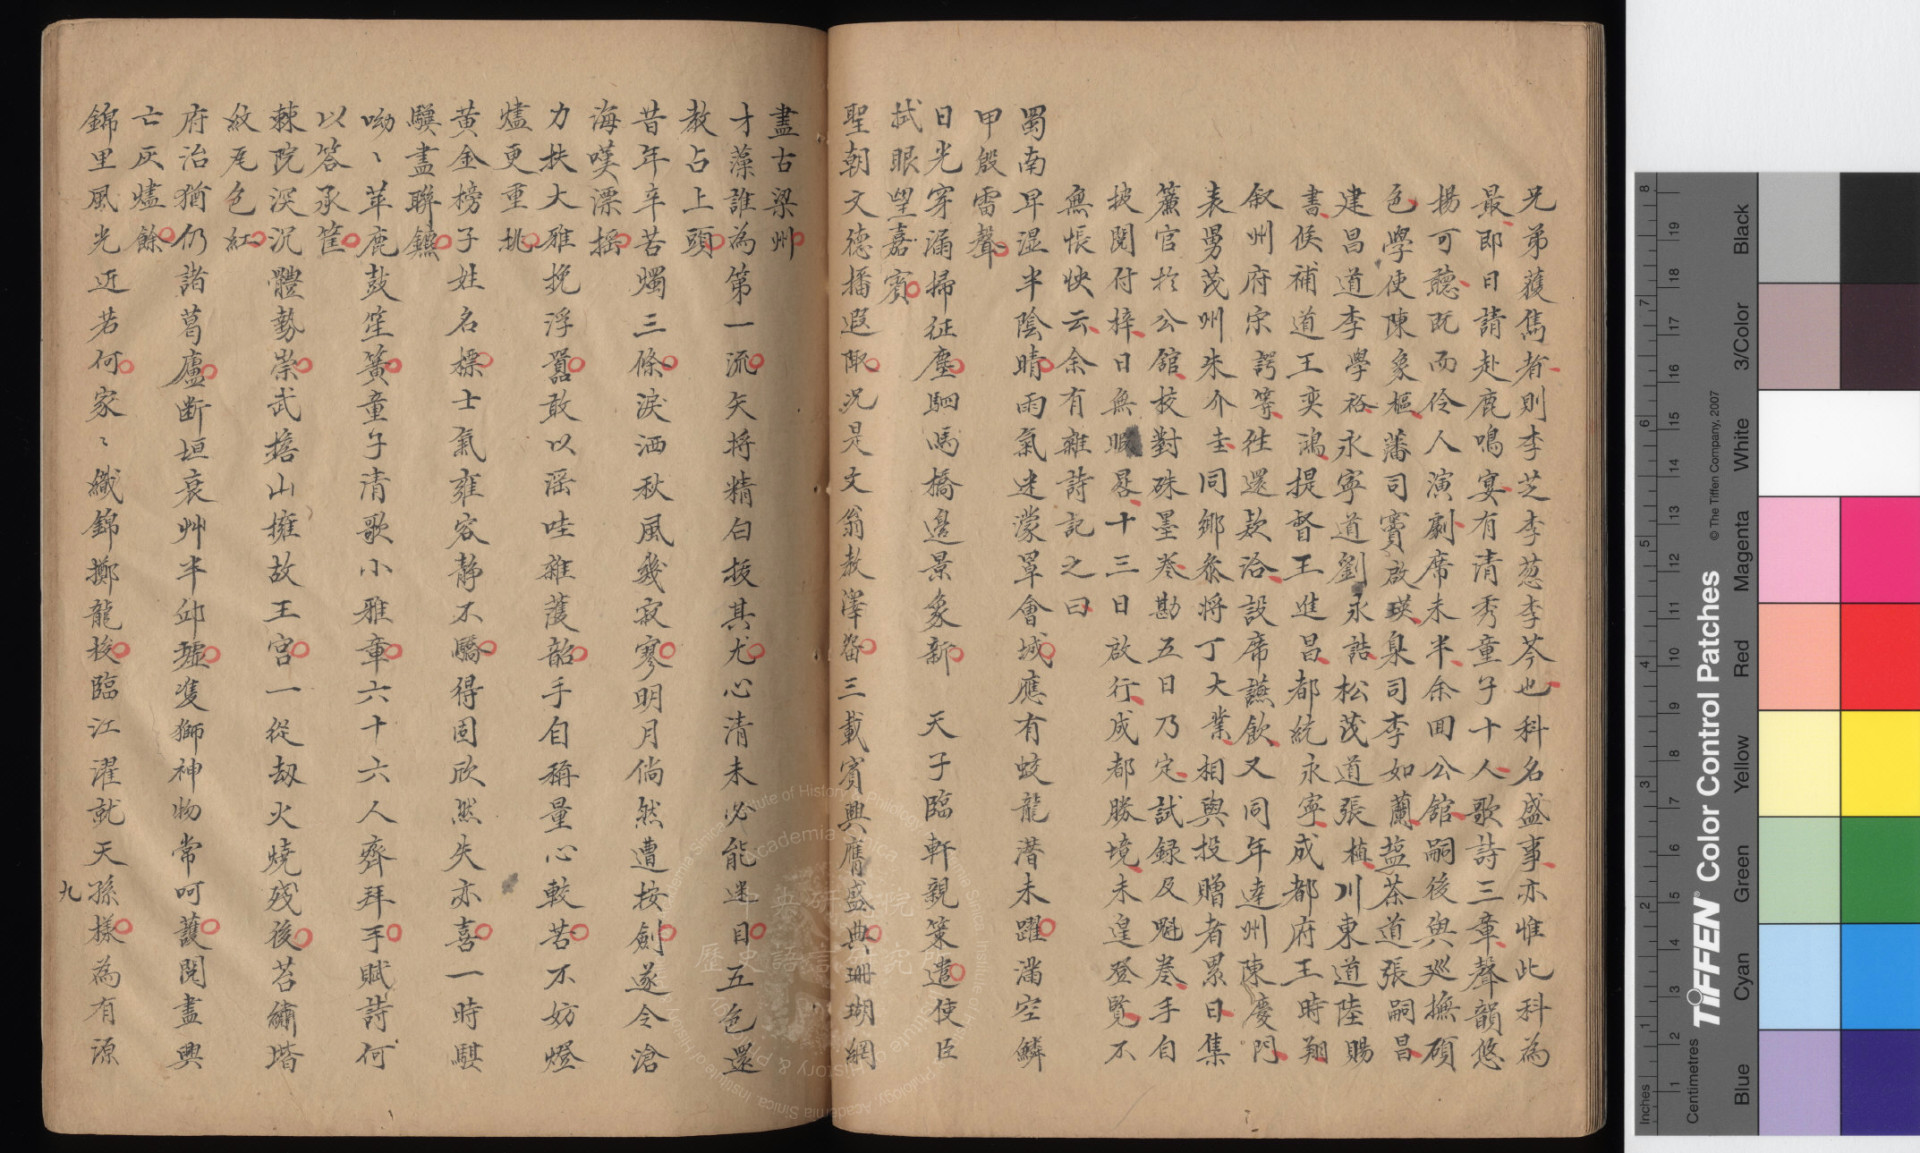 兄弟獲雋者則李芝李荵李芩也科名盛事亦惟此科為
最即日請赴鹿鳴宴有清秀童子十人歌詩三章聲韻悠
揚可聽既而伶人演劇席未半余回公館嗣後與巡撫碩
色學使陳象樞藩司竇啟瑛臬司李如蘭鹽茶道張嗣昌
建昌道李學裕永寧道劉永誥松茂道張植川東道陸賜
書候補道王奕鴻提督王進昌都統永寧成都府王時翔
叙州府宋諤等往還欵洽設席讌飲又同年達州陳慶門
表舅茂州朱介圭同鄉叅將丁大業相與投贈者累日集
簾官於公館校對硃墨卷勘五日乃定試録及魁卷手自
披閱付梓日無暇晷十三日啟行成都勝境未遑登覽不
無悵怏云余有雜詩記之曰
蜀南早湿半陰晴雨氣迷濛罩會城應有蛟龍潜未躍滿空鱗
甲殷雷聲
日光穿漏掃征塵駟馬橋邊景象新 天子臨軒親策遣使臣
拭眼望嘉賓
聖朝文德播遐陬况是文翁教澤畱三載賓興膺盛典珊瑚網
盡古梁州
才藻誰為第一流矢将精白拔其尤心清未必能迷目五色還
教占上頭
昔年辛苦燭三條淚洒秋風幾寂寥明月倘然遭按劍遂令滄
海嘆漂搖
力扶大雅挽浮囂敢以淫哇雜蒦韶手自稱量心較苦不妨燈
爐更重挑
黃金榜子姓名標士氣雍容静不驕得固欣然失亦喜一時騏
驥盡聯鑣
呦〻苹鹿鼓笙簧童子清歌小雅章六十六人齊拜手賦詩何
以答承筐
棘院深沉體勢崇武擔山擁故王宮一從刼火燒殘後苔繡堦
紋瓦色紅
府治猶仍諸葛廬断垣衰艸半邱墟雙獅神物常呵護閱盡興
亡灰燼餘
錦里風光近若何家〻織錦擲龍梭臨江濯就天孫樣為有源
九